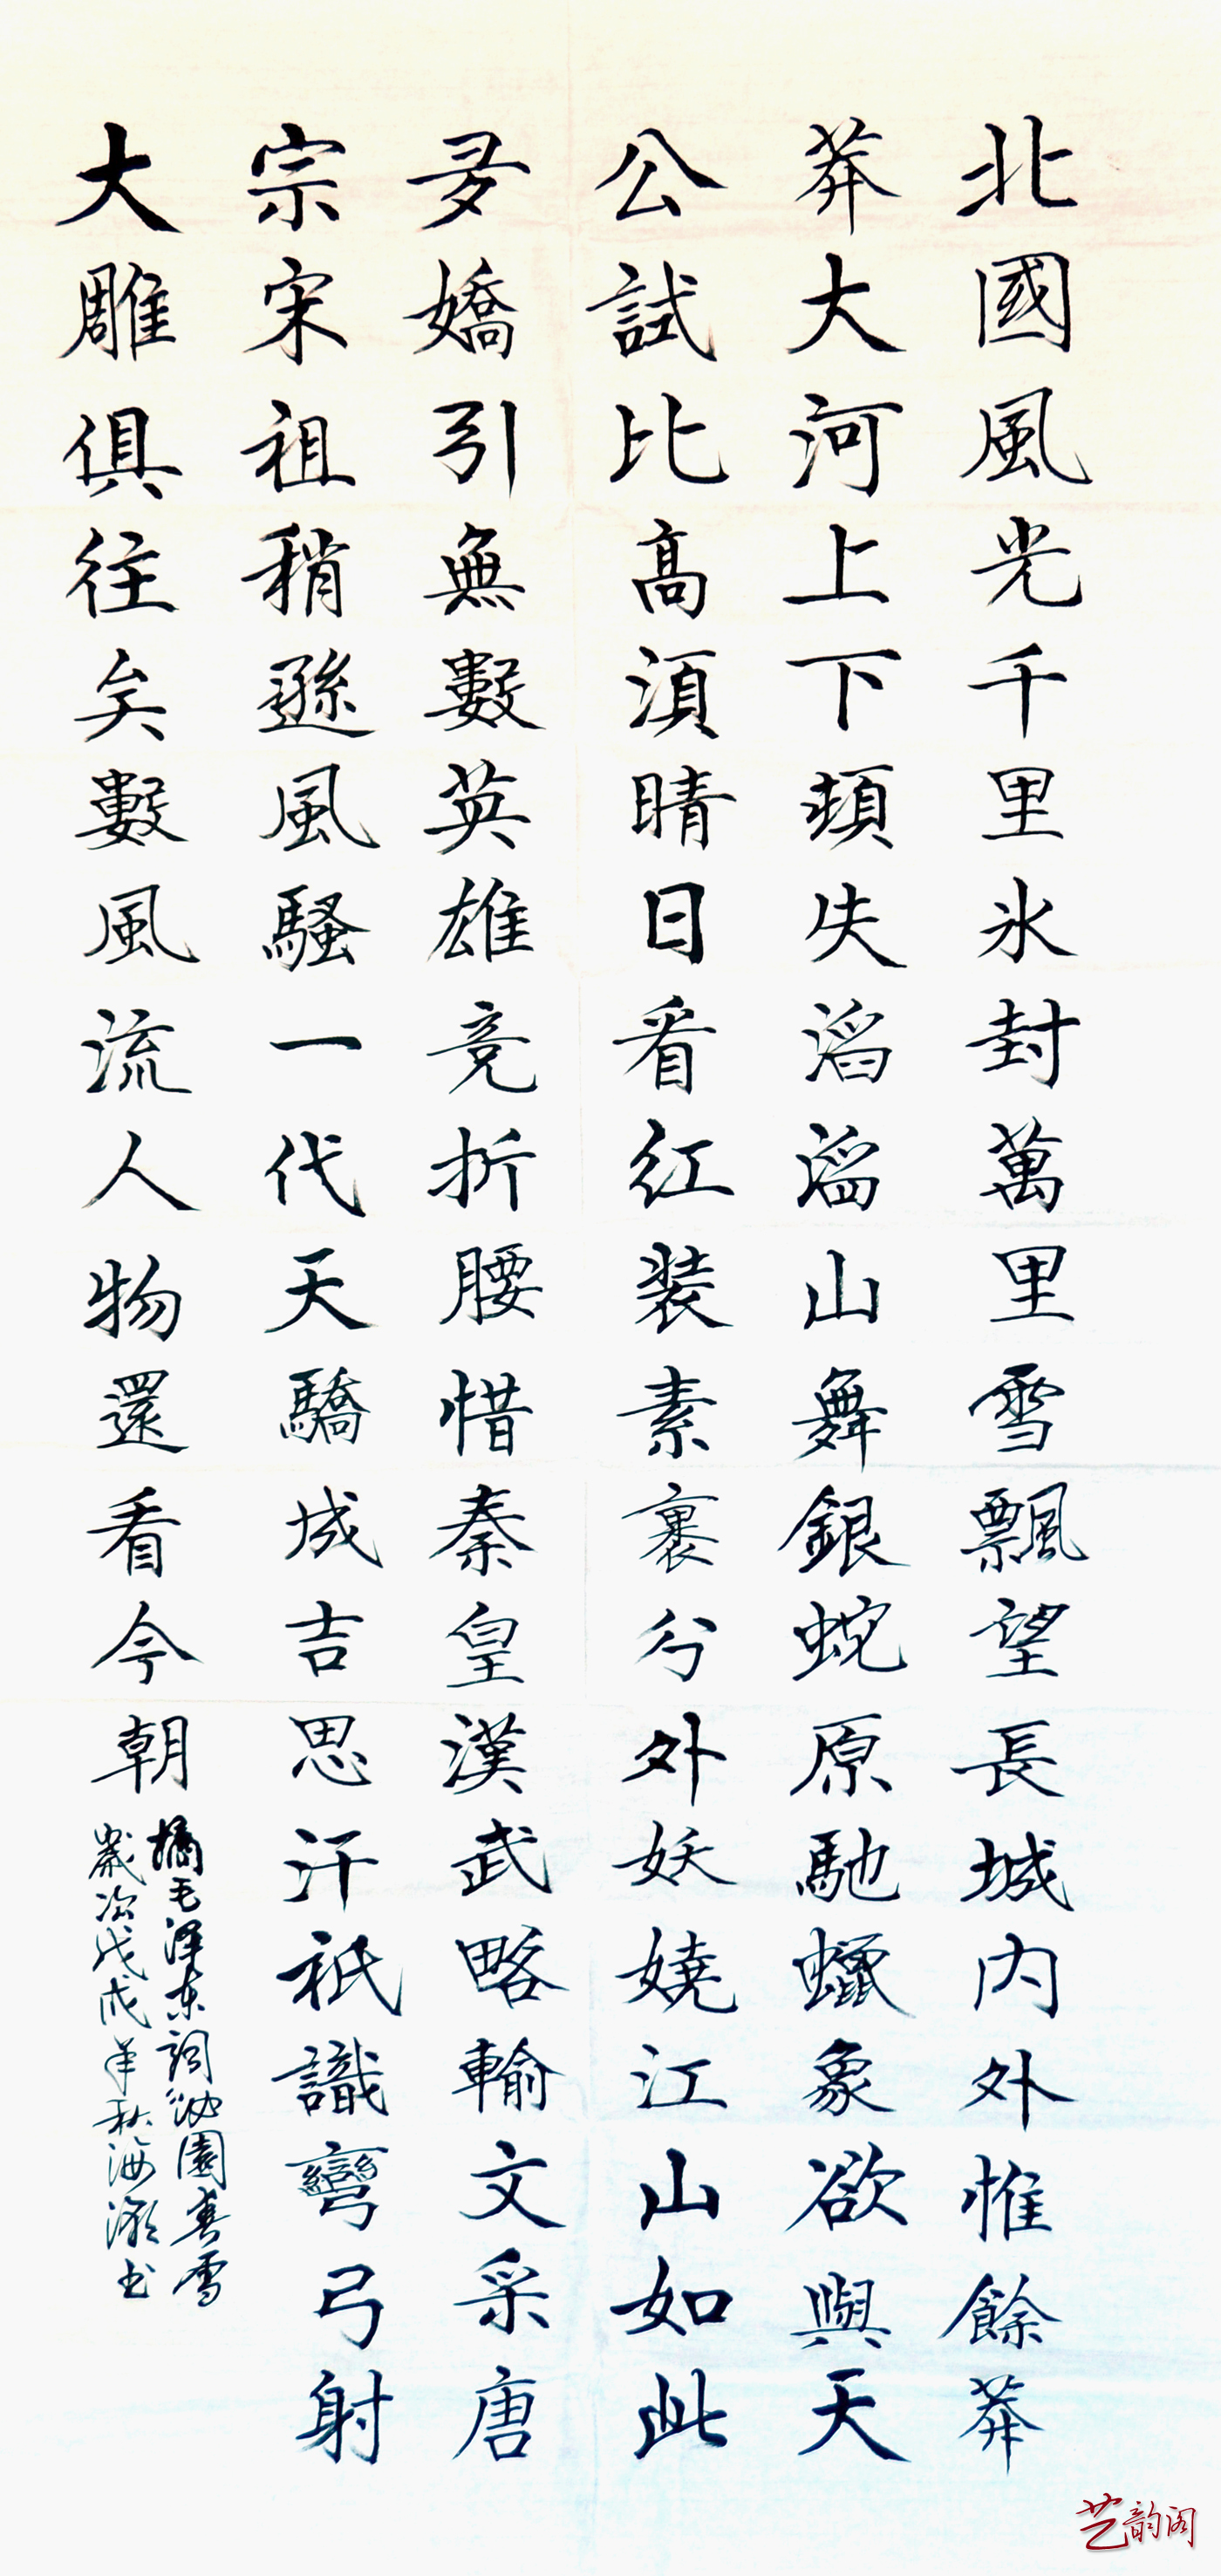 北國風光千里氷封萬里雪飄望長城内外惟餘莽
莽大河上下頓失滔滔山舞銀蛇原馳蠟象欲與天
公試比髙湏晴日看紅装素裹分外妖嬈江山如此
多嬌引無數英雄竞折腰惜秦皇漢武略輸文采唐
宗宋祖稍遜風騷一代天驕成吉思汗祇識彎弓射
大雕俱往矣數風流人物還看今朝
摘毛泽东詞沁園春雪
歲次戊戌年秋海灝书
艺韵阁